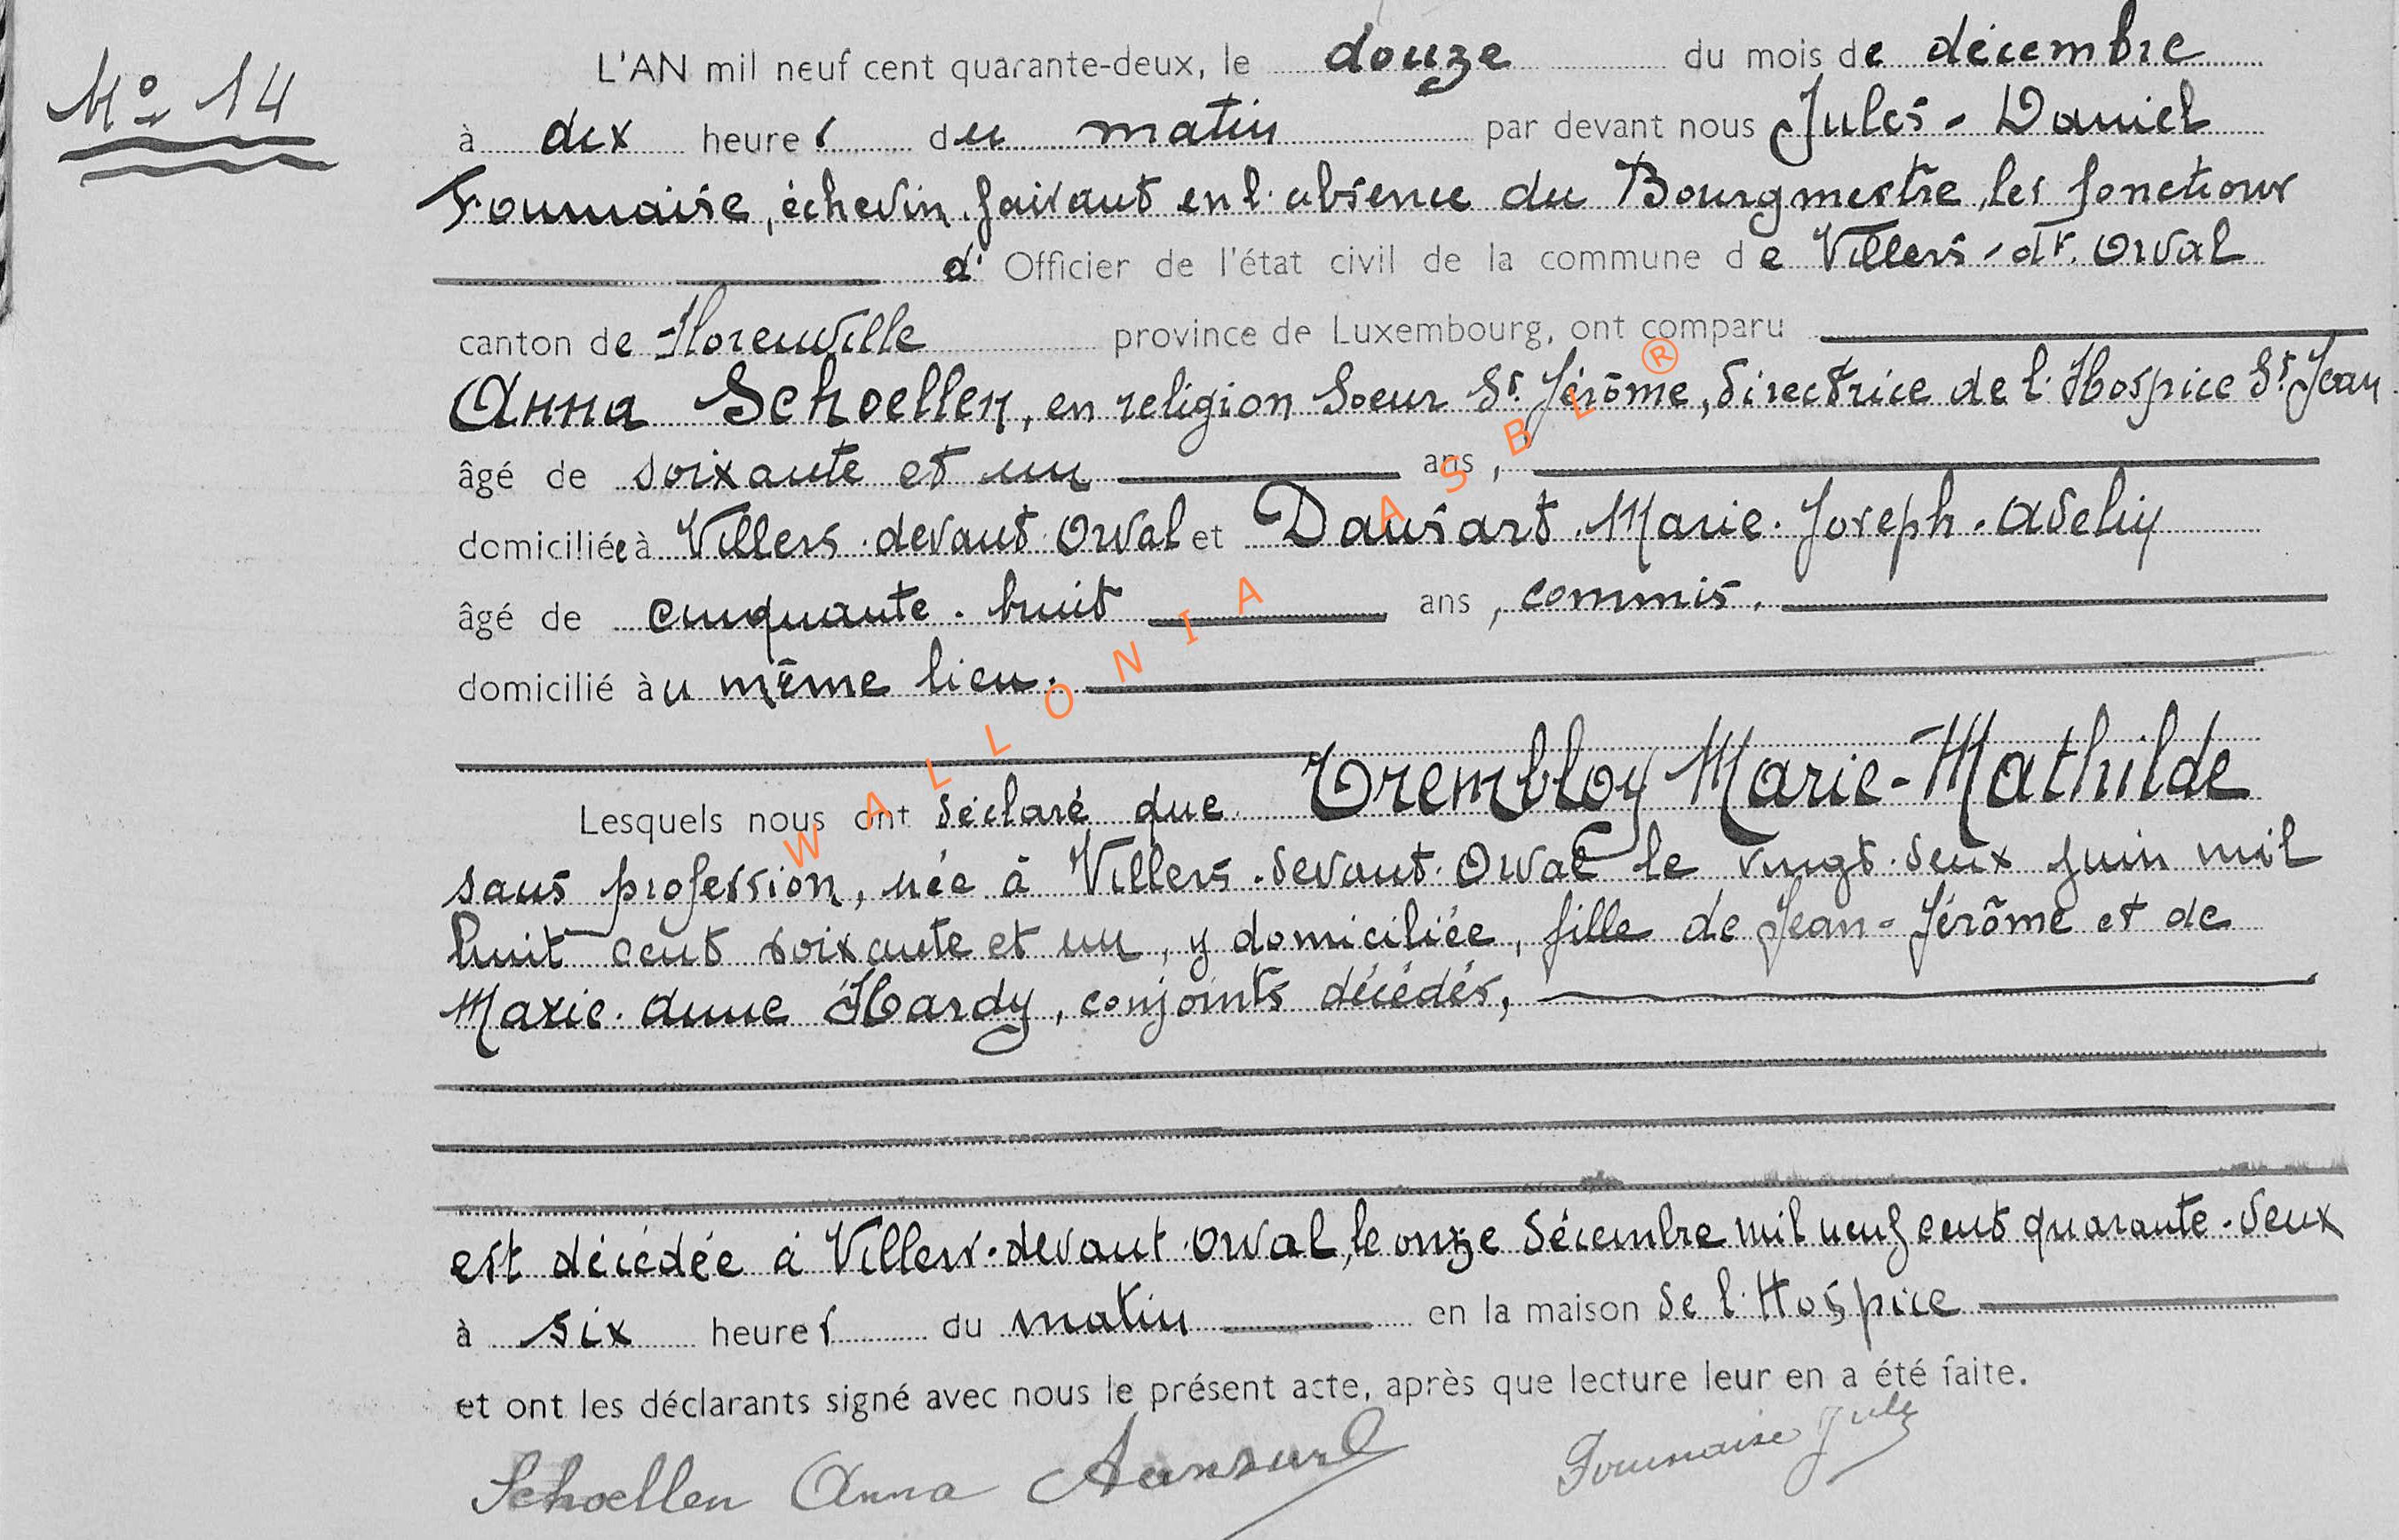 N° 14
L'AN mil neuf cent quarante-deux, le douze du mois de décembre
à dix heures du matin par devant nous Jules - Daniel
Fournaise, échevin faisant en l'absence du Bourgmestre, les fonctions
d' Officier de l'état civil de la commune de Villers-dt. Orval
canton de Florenville province de Luxembourg, ont comparu
Anna Schoellen, en religion Soeur St. Jérôme, directrice de l'Hospice St Jean
âgé de soixante et un ans,
domiciliée à Villers-devant-Orval et Dansart Marie-Joseph-Adelin
âgé de cinquante-huit ans, commis.
domicilié au même lieu.
Lesquels nous ont déclaré que Trembloy Marie-Mathilde
sans profession, née à Villers-devant-Orval le vingt-deux juin mil
huit cent soixante et un, y domiciliée, fille de Jean-Jérôme et de
Marie-Anne Hardy, conjoints décédés,
est décédée à Villers-devant-Orval, le onze décembre mil neuf cent quarante-deux
à six heures du matin en la maison de l'Hospice
et ont les déclarants signé avec nous le présent acte, après que lecture leur en a été faite.
Schoellen Anna Dansart Fournaise Jules
WALLONIA ASBL ®